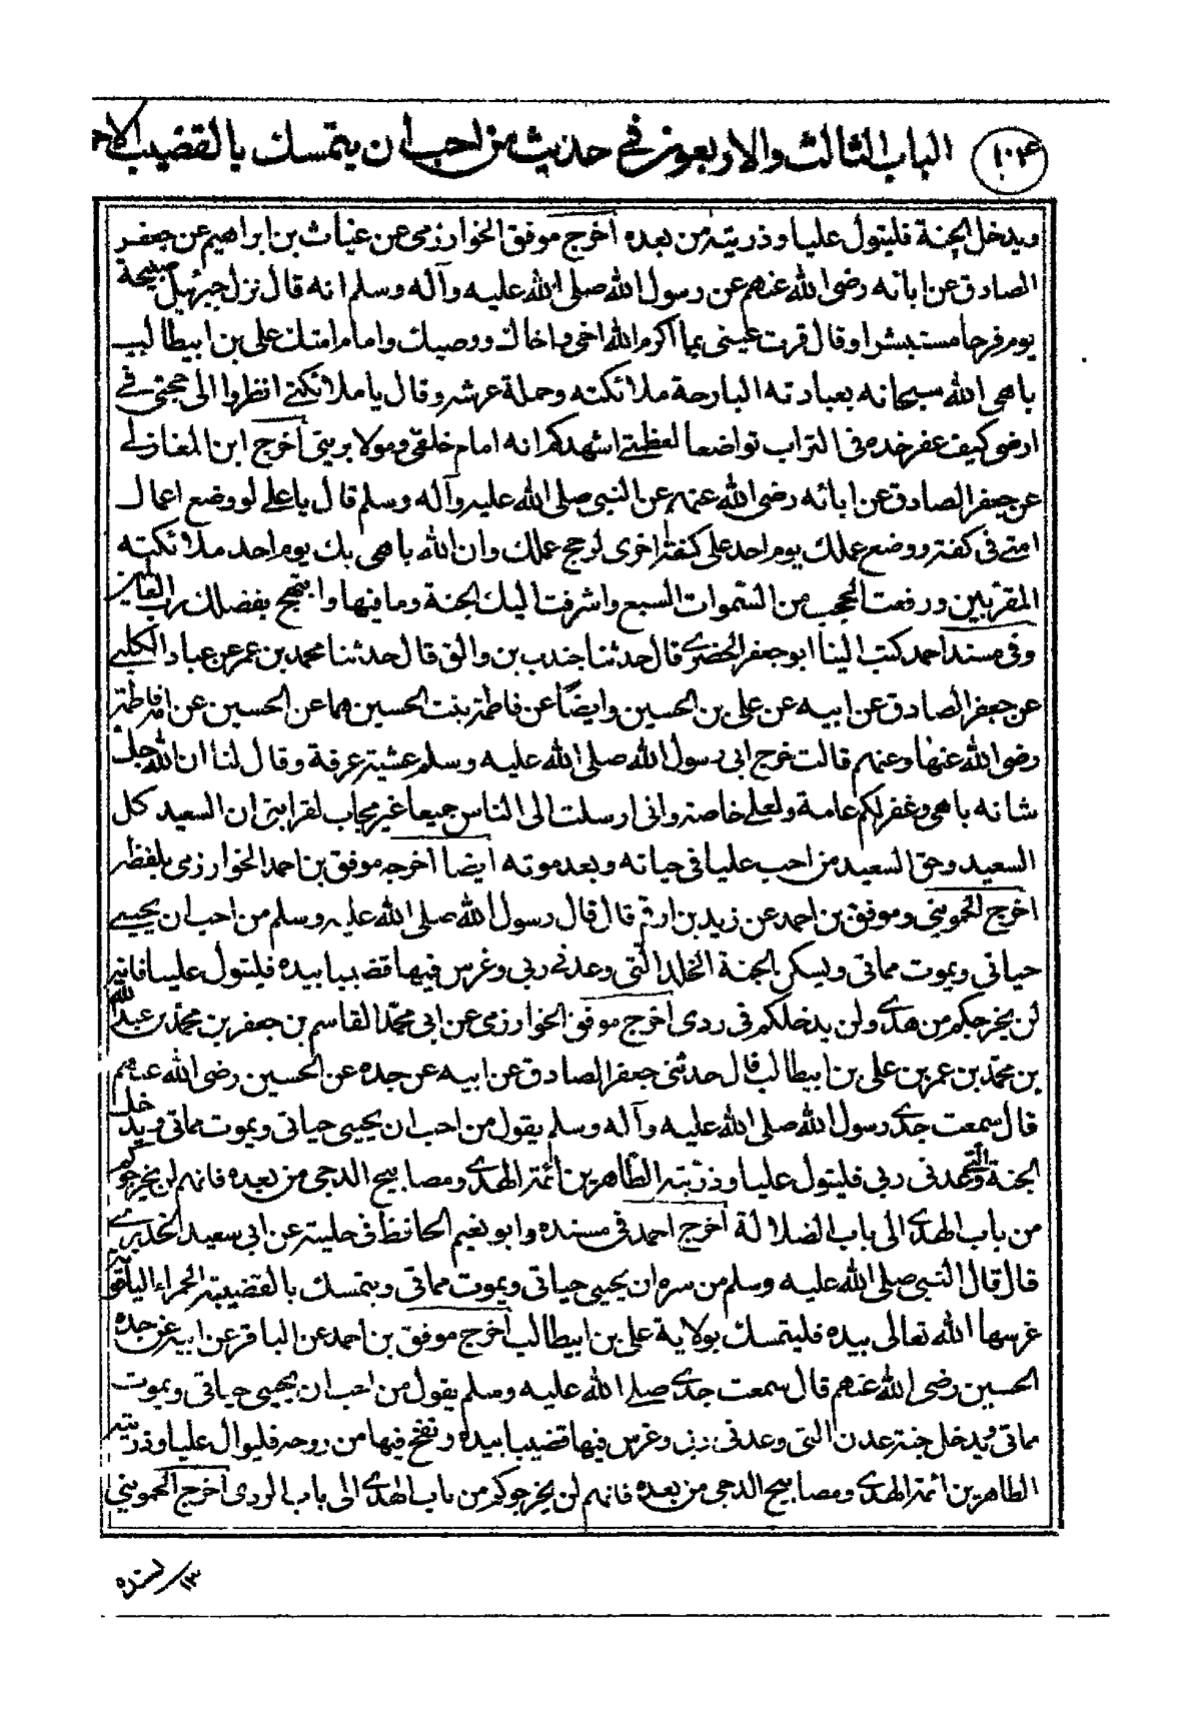 ١٠٤ الباب الثالث والاربعون في حديث من احب ان يتمسك بالقضيب الاحمر
ويدخل الجنة فليتول عليا وذريته من بعده اخرج موفق الخوارزمى عن غياث بن ابراهيم عن جعفر
الصادق عن ابائه رضى الله عنهم عن رسول الله صلى الله عليه وآله وسلم انه قال نزل جبرئيل صبيحة
يوم فرحا مستبشرا وقال قرت عينى بما اكرم الله اخى واخاك ووصيك وامام امتك على بن ابيطالب
باهى الله سبحانه بعبادته البارحة ملائكته وحملة عرشه وقال يا ملائكتي انظروا الى حجتى في
ارضى كيف عفر خده في التراب تواضعا لعظمتي اشهدكم انه امام خلقى ومولا بريتى اخرج ابن المغازلي
عن جعفر الصادق عن ابائه رضى الله عنهم عن النبى صلى الله عليه وآله وسلم قال يا علي لو وضع اعمال
امتي في كفة ووضع عملك يوم احد على كفة اخرى لرجح عملك وان الله باهى بك يوم احد ملائكته
المقربين ورفعت الحجب من السموات السبع واشرفت اليك الجنة وما فيها وابتهج بفضلك رب العالمين
وفى مسند احمد كتب الينا ابو جعفر الحضرمي قال حدثنا جندب بن والق قال حدثنا محمد بن عمر عن عباد الكلبي
عن جعفر الصادق عن ابيه عن على بن الحسين وايضا عن فاطمة بنت الحسين هما عن الحسين عن امه فاطمة
رضى الله عنها وعنهم قالت خرج ابى رسول الله صلى الله عليه وسلم عشية عرفة وقال لنا ان الله جل
شانه باهى وغفر لكم عامة ولعلي خاصة وانى ارسلت الى الناس جميعا غير محاب لقرابتى ان السعيد كل
السعيد وحق السعيد من احب عليا فى حياته وبعد موته ايضا اخرجه موفق بن احمد الخوارزمى بلفظه
اخرج الحمويني وموفق بن احمد عن زيد بن ارقم قال قال رسول الله صلى الله عليه وسلم من احب ان يحيي
حياتى ويموت مماتى ويسكن الجنة الخلد التى وعدنى ربى وغرس فيها قضيبا بيده فليتول عليا فانه
لن يخرجكم من هدي ولن يدخلكم فى ردى اخرج موفق الخوارزمى عن ابى محمد القاسم بن جعفر بن محمد بن عبد الله
بن محمد بن عمر بن على بن ابيطالب قال حدثنى جعفر الصادق عن ابيه عن جده عن الحسين رضى الله عنهم
قال سمعت جدي رسول الله صلى الله عليه وآله وسلم يقول من احب ان يحيى حياتى ويموت مماتى ويدخل
الجنة التي وعدنى ربى فليتول عليا وذريته الطاهرين ائمة الهدي ومصابيح الدجى من بعده فانهم لن يخرجوكم
من باب الهدى الى باب الضلالة اخرج احمد فى مسنده وابو نعيم الحافظ فى حليته عن ابى سعيد الخدري
قال قال النبى صلى الله عليه وسلم من سره ان يحيى حياتى ويموت مماتى ويتمسك بالقضيبة الحمراء الياقوتة
غرسها الله تعالى بيده فليتمسك بولاية على بن ابيطالب اخرج موفق بن احمد عن الباقر عن ابيه عن جده
الحسين رضى الله عنهم قال سمعت جدي صلى الله عليه وسلم يقول من احب ان يحيى حياتى ويموت
مماتى ويدخل جنة عدن التى وعدنى ربى وغرس فيها قضيبا بيده ونفخ فيها من روحه فليوال عليا وذريته
الطاهرين ائمة الهدي ومصابيح الدجى من بعده فانهم لن يخرجوكم من باب الهدي الى باب الردى اخرج الحمويني